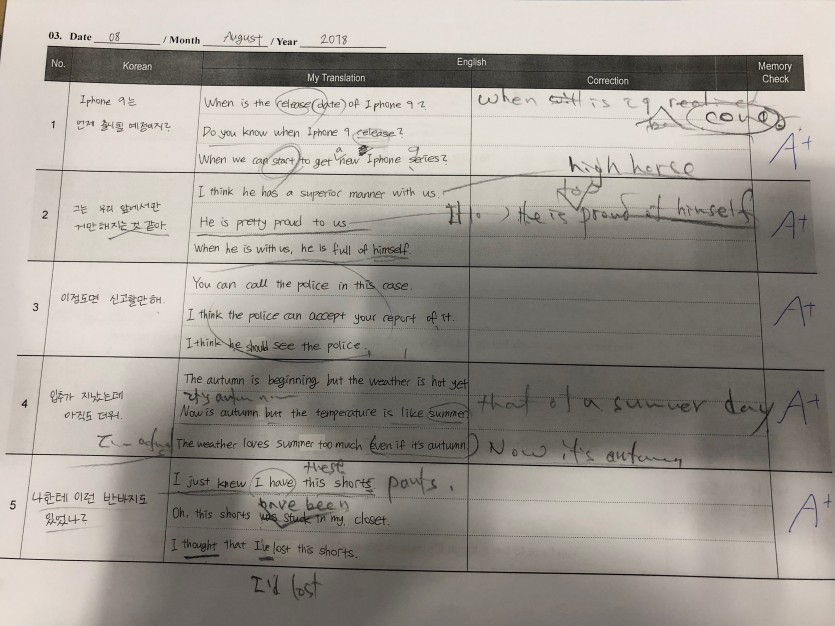 03. Date 08 / Month August / Year 2018
No. Korean English Memory Check
My Translation Correction
1
Iphone 9는
언제 출시될 예정이지?
When is the release (date) of Iphone 9?
Do you know when Iphone 9 release?
When we can start to get a new Iphone 9 series?
when will is
comes
A+
2
그는 우리 앞에서만
거만해지는 것 같아.
I think he has a superior manner with us.
He is pretty proud to us
When he is with us, he is full of himself.
high horse
top
he is proud of himself
A+
3
이정도면 신고할만해.
You can call the police in this case.
I think the police can accept your report of it.
I think he should see the police.
A+
4
입추가 지났는데
아직도 더워.
The autumn is beginning but the weather is hot yet
it's autumn
Now is autumn but the temperature is like summer
The weather loves summer too much (even if it's autumn.)
that of a summer day
Now it's autumn
A+
5
나한테 이런 반바지도
있었나?
these
I just knew I have this shorts pants.
have been
Oh. this shorts was stuck in my closet.
I thought that I've lost this shorts.
I'd lost
A+